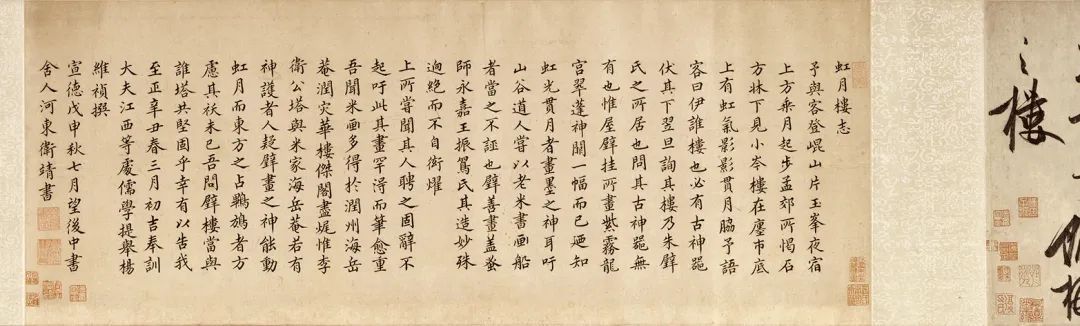 之樓
虹月樓志
予與客登崐山片玉峯夜宿
上方乗月起步孟郊所愒石
方牀下見小岑樓在廛市底
上有虹氣影影貫月脇予語
客曰伊誰樓也必有古神噐
伏其下翌旦詢其樓乃朱璧
氏之所居也問其古神噐無
有也惟屋壁挂所畫紫霧龍
宫翠蓬神闕一幅而已廼知
虹光貫月者畫墨之神耳吁
山谷道人甞以老米書画船
者當之不誣也璧善畫盖蚤
師永嘉王振鵬氏其造妙殊
逈絶而不自衒燿
上所甞聞其人聘之固辭不
起吁此其畫罕淂而筆愈重
吾聞米画多得於潤州海岳
菴潤灾華樓傑閣盡惟李
衛公塔與米家海岳菴若有
神護者人疑壁畫之神能動
虹月而東方之占者方
慮其祅未已吾問璧樓當與
誰塔共堅固乎幸有以告我
至正辛丑春三月初吉奉訓
大夫江西等處儒學提舉楊
維禎撰
宣德戊申秋七月望後中書
舍人河東衛靖書